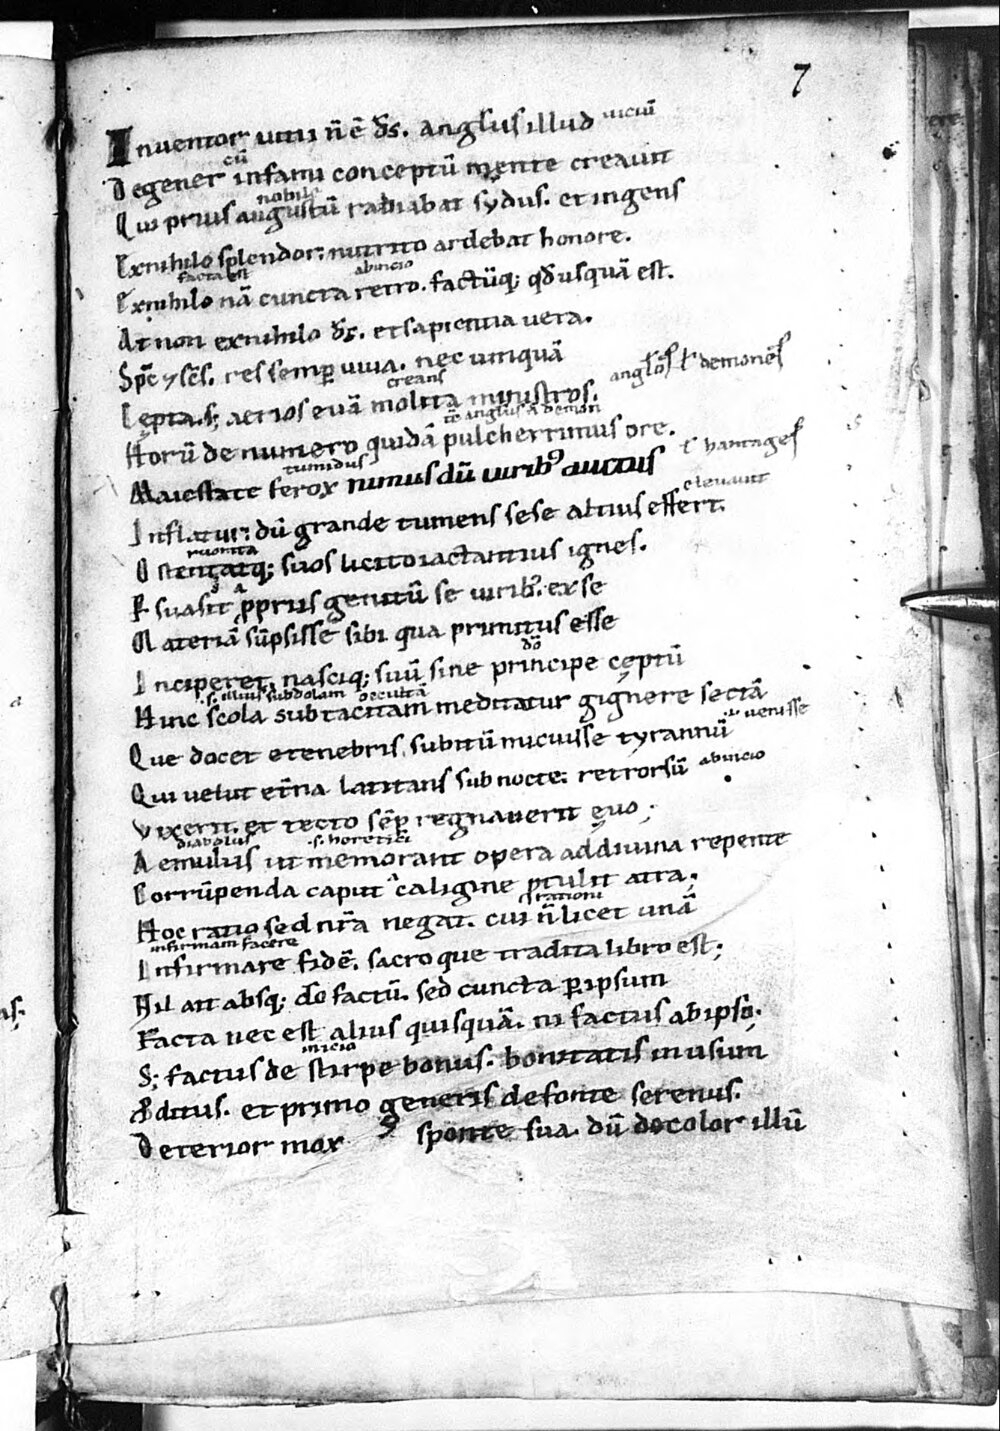 7
Inventor vitii n̄ ē d̄s. anglus illud viciū
cū
Degener infami conceptū mente creavit
nobile
Qui prius augustū radiabat sydus. et ingens
Exnihilo splendor: nutrito ardebat honore.
facta est abinicio
Exnihilo nā cuncta retro. factūq; qd usquā est.
At non exnihilo d̄s. et sapientia vera.
Sp̄c ⁊ sc̄s. res semp viva. nec umquā
creans anglos ł demones
Cepta. s; aerios euā molita ministros.
Horū de numero quidā pulcherrimus ore.
tumidus ł vantages
Maiestate ferox nimius dū virib⁹ auctus
elevavit
Inflatur: dū grande tumens sese altius effert.
Ostentatq; suos licito iactantius ignes.
P suasit pprиis genitū se virib⁹. ex se
Materiā sūpsisse sibi qua primitus esse
dō
Inciperet. nasciq; suū sine principe ceptū
.s. illius subdolam occultā
Hinc scola subtacitam meditatur gignere sectā
ł venisse
Que docet etenebris subitū micuisse tyrannū
abinicio
Qui velut et̄na latitans sub nocte: retrorsū
Vixerit. et tecto sēp regnaverit evo;
diabolus .s. heretici
Aemulus ut memorant opera addivina repente
Corrūpenda caput caligine ptulit atra.
rationi
Hoc ratio sed nr̄a negat. cui n̄ licet unā
infirmam facere
Infirmare fidē. sacro que tradita libro est;
Nil ait absq; dō factū. sed cuncta p ipsum
Facta nec est alius quisquā. ni factus ab ipso.
inicio
S; factus de stirpe bonus. bonitatis in usum
Editus. et primo generis defonte serenus.
Deterior mox sponte sua. dū decolor illū